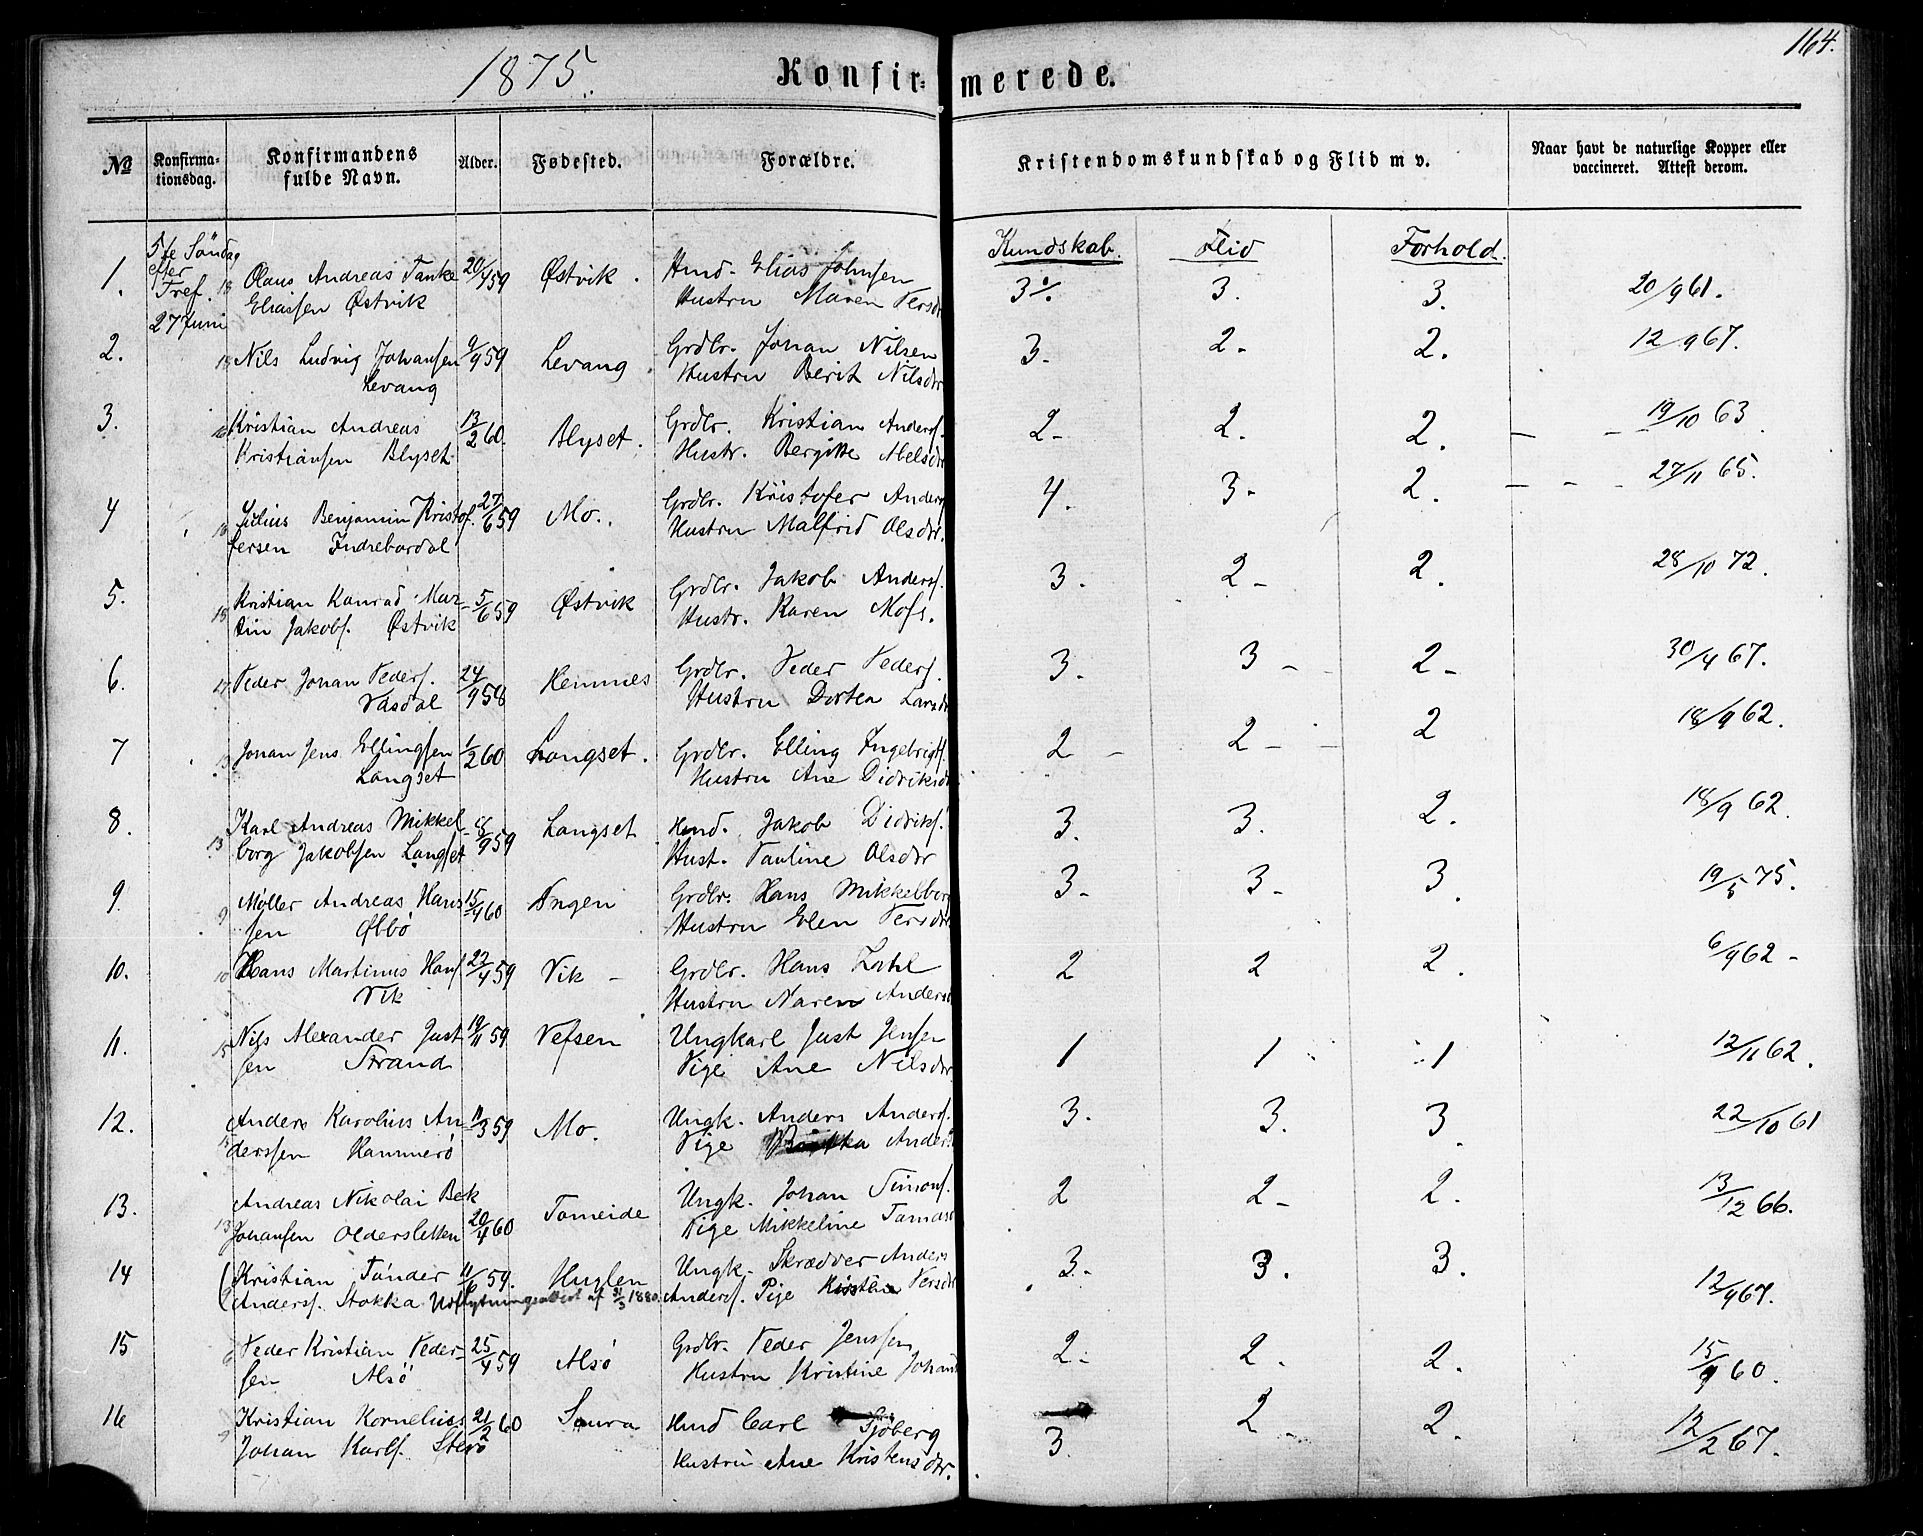 1875.
Konfirmerede.
164.
№
Konfirmationsdag.
Konfirmandens fulde Navn.
Alder.
Fødested.
Forældre.
Kristendomskundskab og Flid m v.
Naar havt de naturlige Kopper eller vaccineret. Attest derom.
Kundskab. Flid Forhold.
5te Söndag efter Tref. 27 Juni
1. 18 Olaus Andreas Tanke 20/4 59 Østvik. Hmd. Elias Johnsen 3 3. 3. 20/9 61.
Eliassen Østvik Hustru Maren Persdr
2. 13 Nils Ludvig Johansen 9/9 59 Levang. Grdbr. Johan Nilsen 3. 2. 2. 12/9 67.
Levang Hustru Berit Nilsdr
3. 16 Kristian Andreas 13/2 60. Blyset. Grdbr. Kristian Anders. 2- 2. 2. 19/10 63.
Kristiansen Blyset Hustr. Bergitte Abelsdr
4 Julius Benjamin Kristof. 27/6 59 Mo. Grdbr. Kristofer Anders 4. 3- 2. 27/11 65.
fersen Indrebardal Hustru Malfrid Olsdr.
5. 15 Kristian Konrad Mar- 5/6 59 Østvik Grdbr. Jakob Anders. 3. 2- 2. 28/10 72.
tin Jakobs. Østvik Hustr. Karen Mofs.
6. 17 Peder Johan Peders. 24/9 58 Hemnes Grdbr. Peder Peders. 3. 3- 2- 30/4 67.
Vasdal Hustru Dortea Larsdr
7 13 Johan Jens Ellingsen 1/2 60 Langset. Grdbr. Elling Ingebrigts. 2- 2- 2 18/9 62.
Langset Hustru Ane Didriksdr
8. 13 Karl Andreas Mikkel- 8/9 59 Langset Hmd. Jakob Didriks. 3. 3. 2. 18/9 62.
borg Jakobsen Langset Hust. Pauline Olsdr
9. 9 Møller Andreas Hans 15/4 60 Angen Grdbr. Hans Mikkelborg 3- 3- 3. 19/5 75.
sen Øbbø Hustru Elen Persdr
10. 10 Hans Martinus Hans 22/4 59 Vik - Grdbr. Hans Zahl 2 2 2. 6/9 62-
Vik Hustru Maren Anders
11. 15 Nils Alexander Just 19/11 59 Vefsen Ungkarl Just Jensen 1 1 1 12/11 62.
sen Strand Pige Ane Nilsdr.
12. Anders Karolius An 11/3 59 Mo. Ungk. Anders Anders. 3. 3. 3. 22/10 61
derssen Hammerö Pige Anders
13. 13 Andreas Nikolai Bek 20/4 60 Tomeide Ungk. Johan Simons. 2 2- 2. 13/12 66.
Johansen Oldersletten Pige Mikkeline Tomas
14 Kristian Tönder 11/6 59. Huglen Ungk. Skrædder Anders 3. 3. 3. 12/9 67.
Anders. Stokka Udflytningsattest af 31/3 1880. Anders. Pige Kirstine Persdr
15 Peder Kristian Peder- 25/4 59 Alsö Grdbr. Peder Jenssen 2- 2. 2. 15/9 60.
sen Alsö Hustru Kristine Johans
16 9 Kristian Kornelius 21/2 60 Saura Hmd Carl Sjöberg 3. 2 2. 12/2 67.
Johan Karls. Sterö Hustru Ane Kristensdr.